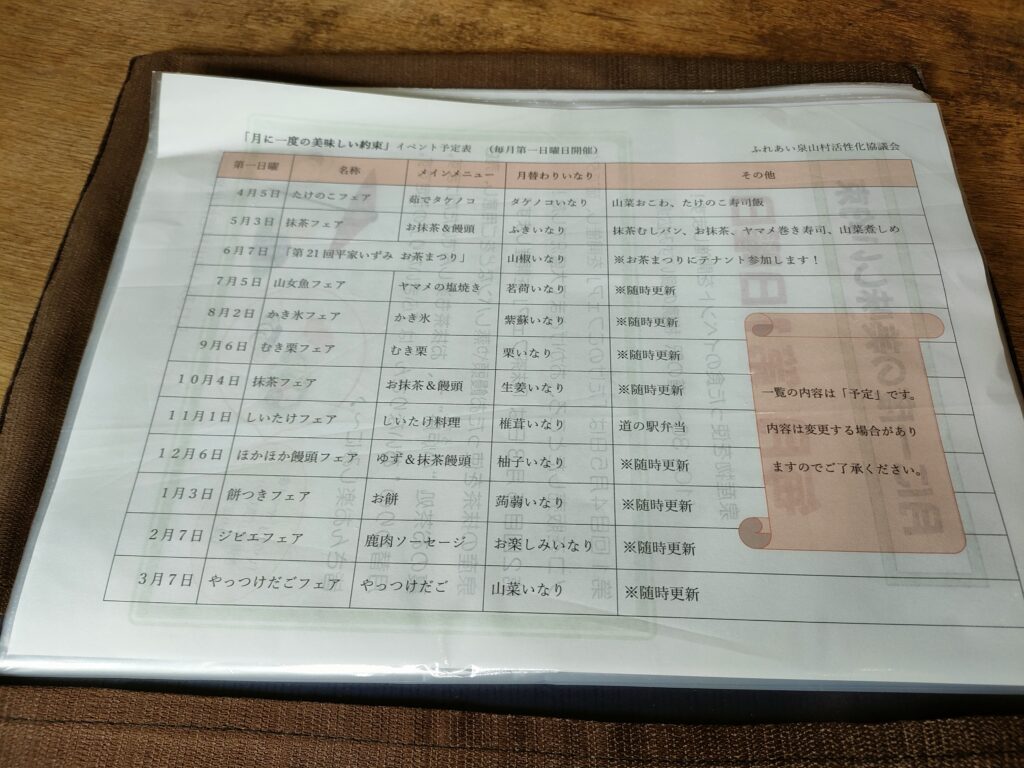 「月に一度の美味しい約束」イベント予定表 （毎月第一日曜日開催） ふれあい泉山村活性化協議会
第一日曜 名称 メインメニュー 月替わりいなり その他
4月5日 たけのこフェア 茹でタケノコ タケノコいなり 山菜おこわ、たけのこ寿司飯
5月3日 抹茶フェア お抹茶＆饅頭 ふきいなり 抹茶むしパン、お抹茶、ヤマメ巻き寿司、山菜煮しめ
6月7日 「第21回平家いずみ お茶まつり」 山椒いなり ※お茶まつりにテナント参加します！
7月5日 山女魚フェア ヤマメの塩焼き 茗荷いなり ※随時更新
8月2日 かき氷フェア かき氷 紫蘇いなり ※随時更新
9月6日 むき栗フェア むき栗 栗いなり ※随時更新
10月4日 抹茶フェア お抹茶＆饅頭 生姜いなり ※随時更新
11月1日 しいたけフェア しいたけ料理 椎茸いなり 道の駅弁当
12月6日 ほかほか饅頭フェア ゆず＆抹茶饅頭 柚子いなり ※随時更新
1月3日 餅つきフェア お餅 蒟蒻いなり ※随時更新
2月7日 ジビエフェア 鹿肉ソーセージ お楽しみいなり ※随時更新
3月7日 やっつけだごフェア やっつけだご 山菜いなり ※随時更新
一覧の内容は「予定」です。
内容は変更する場合があり
ますのでご了承ください。